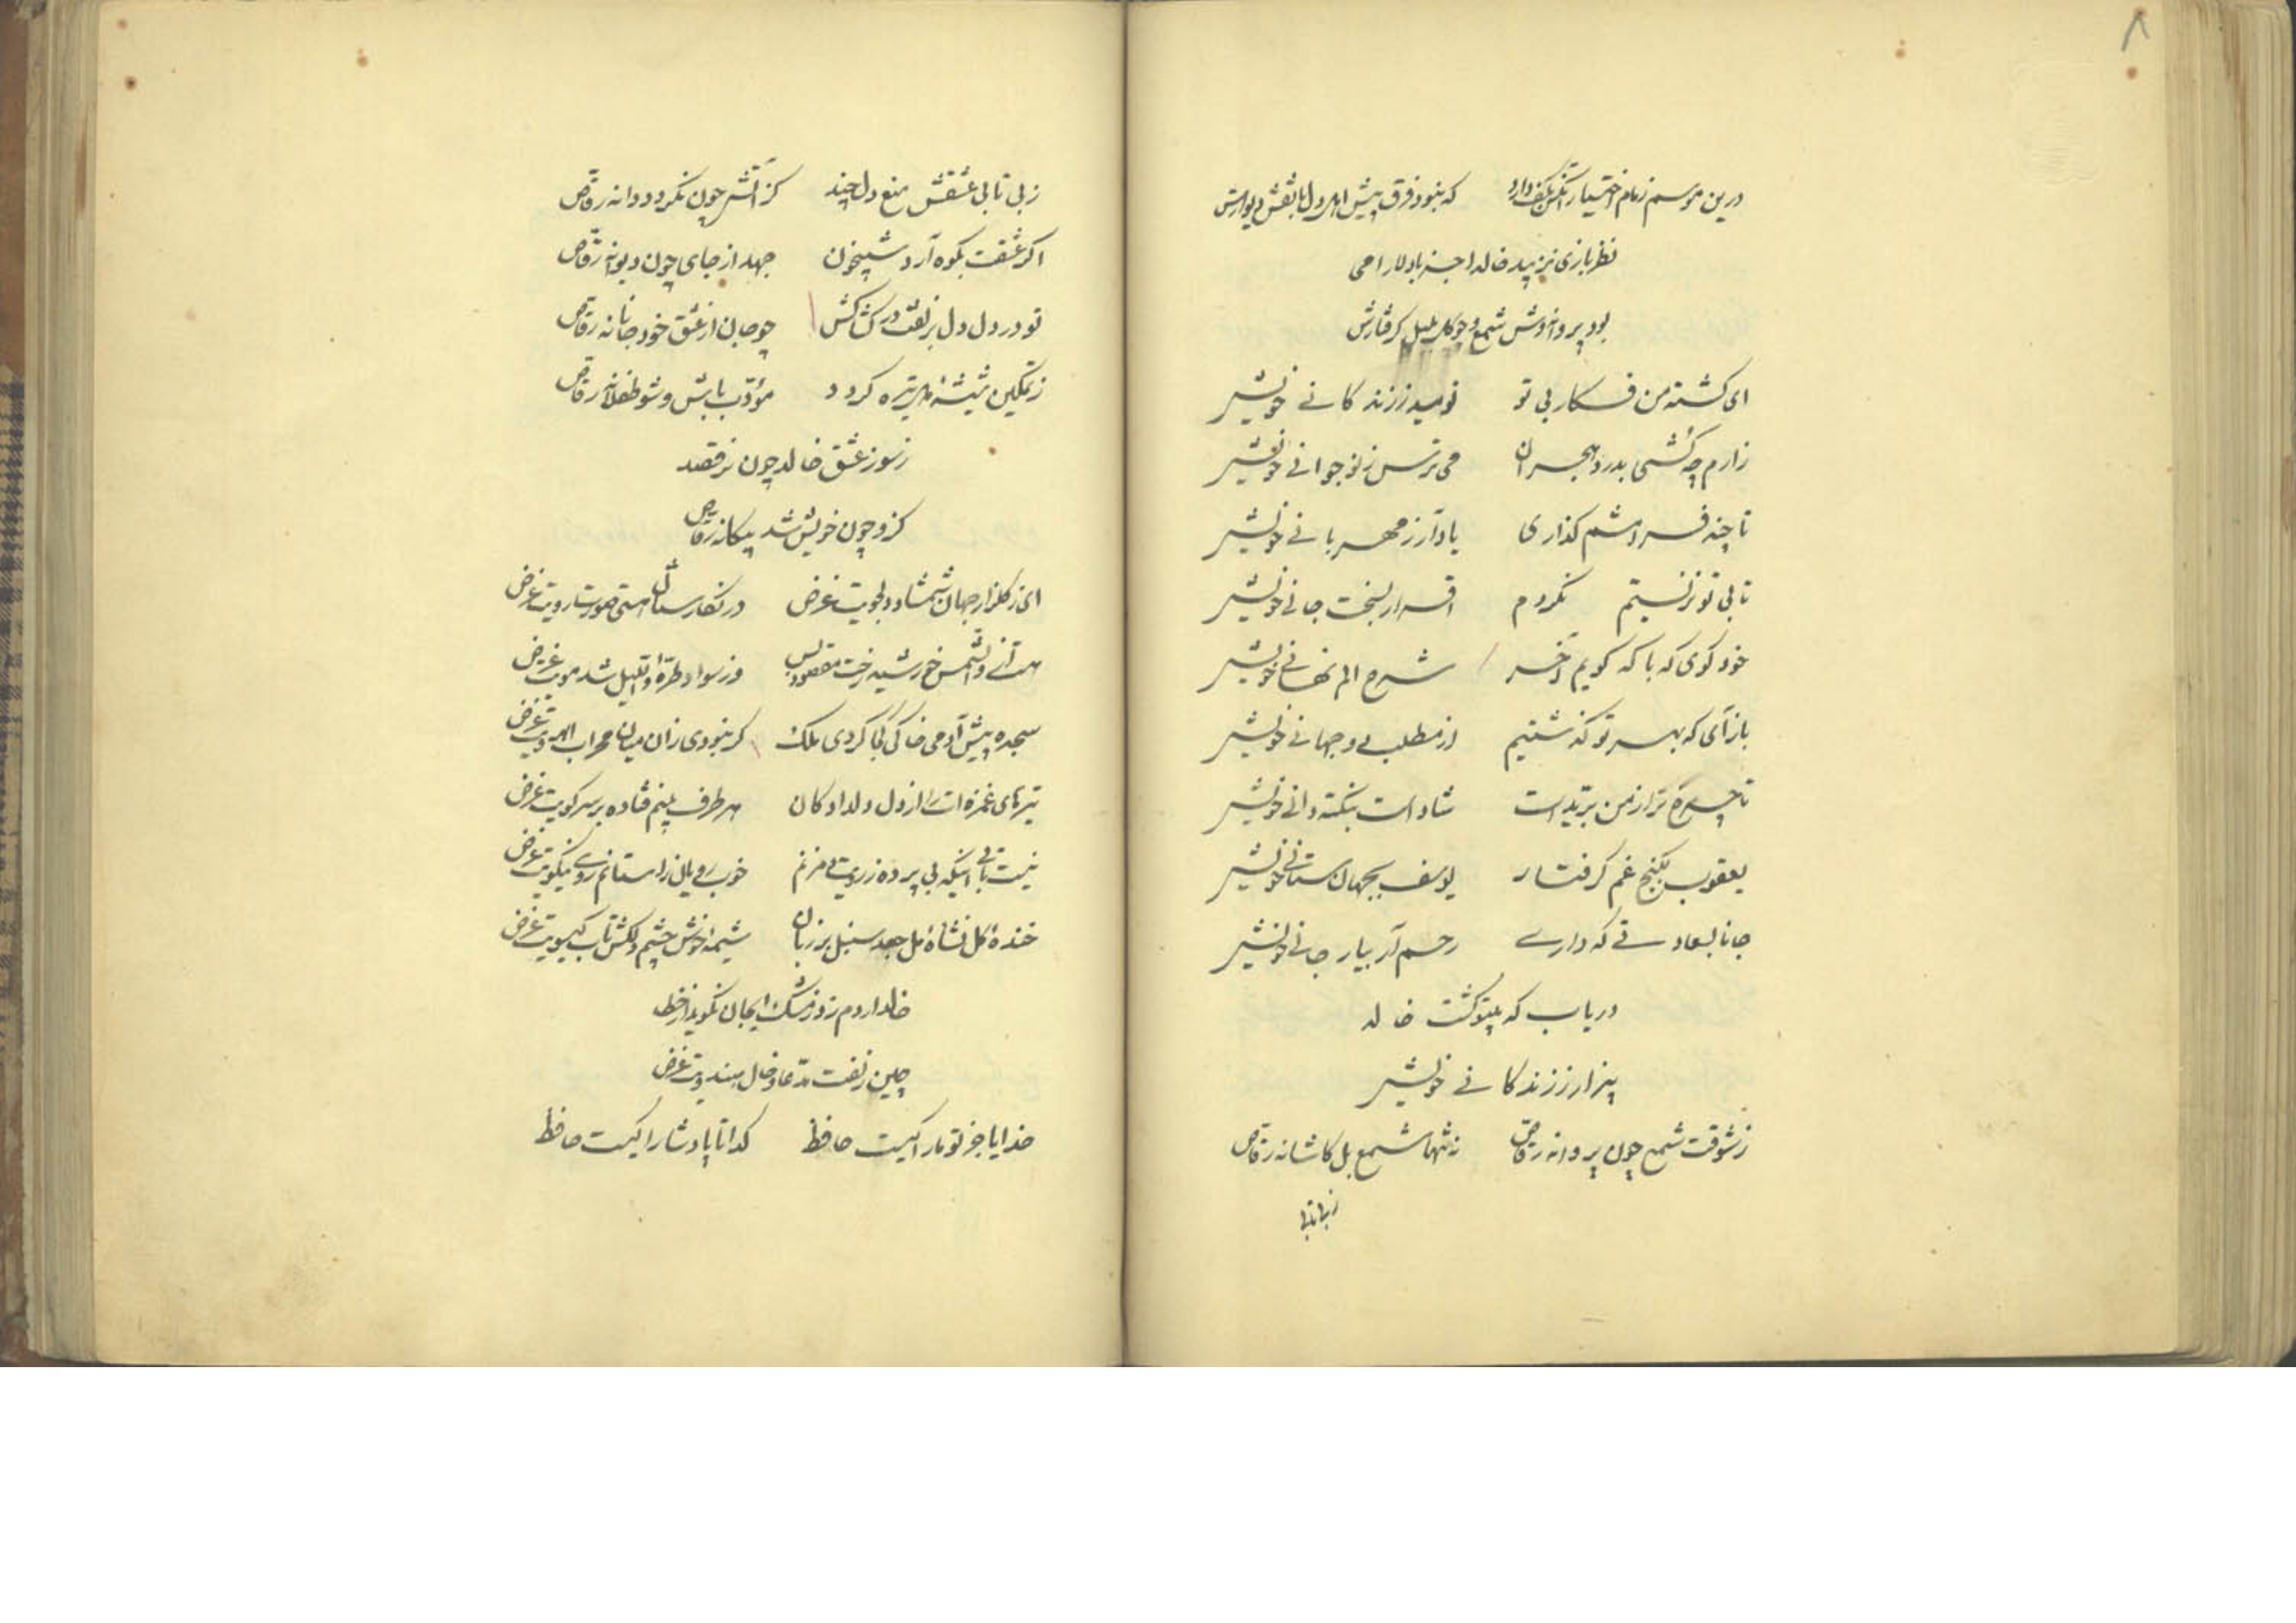 ۸
درین موسم زمام اختیار آنکس بکف دارد که نبود فرق پیش اهل دل با نقش دیوارش
نظربازی نزیبد خالدا جز با دلارامی
بود پروانه‌وش شمع و چو گل بلبل گرفتارش
ای کشته من فکار بی تو نومید ز زندکانے خویش
زارم چه کشی بدرد هجران می ترس ز نوجوانے خویش
تا چند فرامشم کذاری یاد آر ز مهربانے خویش
تا بی تو نزیستم نکردم اقرار بسخت جانے خویش
خود کوی که با که کویم آخر شرح الم نهانے خویش
باز آی که بهر تو کذشتیم از مطلب دوجهانے خویش
تا چرخ ترا ز من بریدست شاد است بنکته دانے خویش
یعقوب بکنج غم کرفتار یوسف بجهان ستانے خویش
جانا بسعادتے که دارے رحم آر بیار جانے خویش
دریاب که بیتو کشت خالد
بیزار ز زندکانے خویش
ز شوقت شمع چون پروانه رقاص نه تنها شمع بل کاشانه رقاص
زبی تابی
زبی تابی عشقش منع دل چند کز آتش چون نکردد دانه رقاص
اکر عشقت بکوه آرد شبیخون جهد از جای چون دیوانه رقاص
تو در دل دل بزلفت در کشاکش چو جان از عشق خود جانانه رقاص
ز تمکین شیشه تیره کردد مؤدب باش و شو طفلانه رقاص
ز سوز عشق خالد چون نرقصد
کزو چون خویش شد بیکانه رقاص
ای ز کلزار جهان شمشاد دلجویت غرض در نکارستان هستی صورت رویت غرض
والشمس خورشید رخت مقصود بس وز سواد طرهٔ واللیل شد مویت غرض
سجده پیش آدمی خاکی کجا کردی ملک کر نبودی زان میان محراب ابرویت غرض
تیرهای غمزه ات را از دل دلدادکان هر طرف بینم فتاده بر سر کویت غرض
نیست تابی اینکه بی پرده ز رویت دم زنم خوب رویان را ستانم روی نیکویت غرض
خندهٔ کل نشاهٔ مل جعد سنبل بر زبان شیمهٔ خوش چشم دلکش تاب کیسویت غرض
خالدا دم زد ز مشک ایجان نکویند از خطا
چین زلفت مدعا و خال هندویت غرض
خدایا جز تو ما را کیست حافظ کدا تا پادشا را کیست حافظ